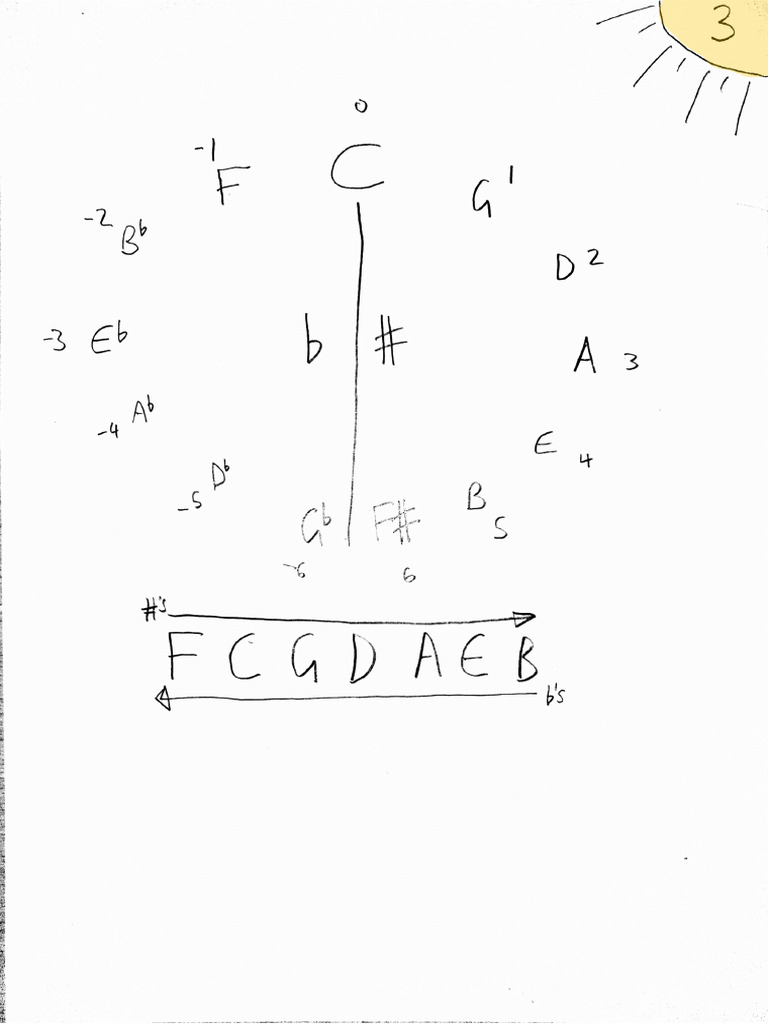 3
0
-1 F C G 1
-2 Bb D 2
-3 Eb b # A 3
-4 Ab E 4
-5 Db B 5
Gb F#
-6 6
#'s
F C G D A E B
b's